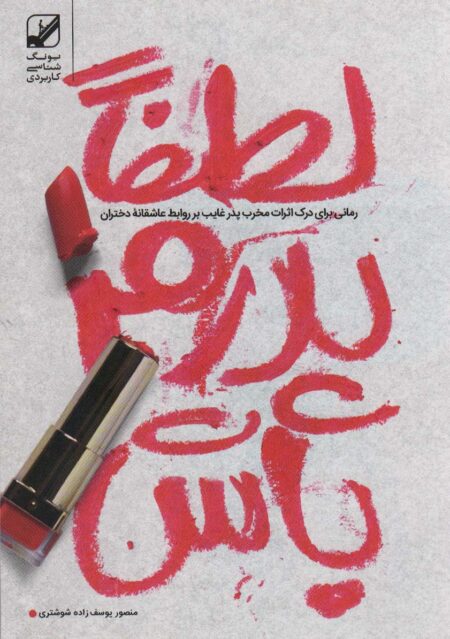 یونگ
شناسی
کاربردی
لطفاً
رمانی برای درک اثرات مخرب پدر غایب بر روابط عاشقانهٔ دختران
پدر من
باش
منصور یوسف زاده شوشتری